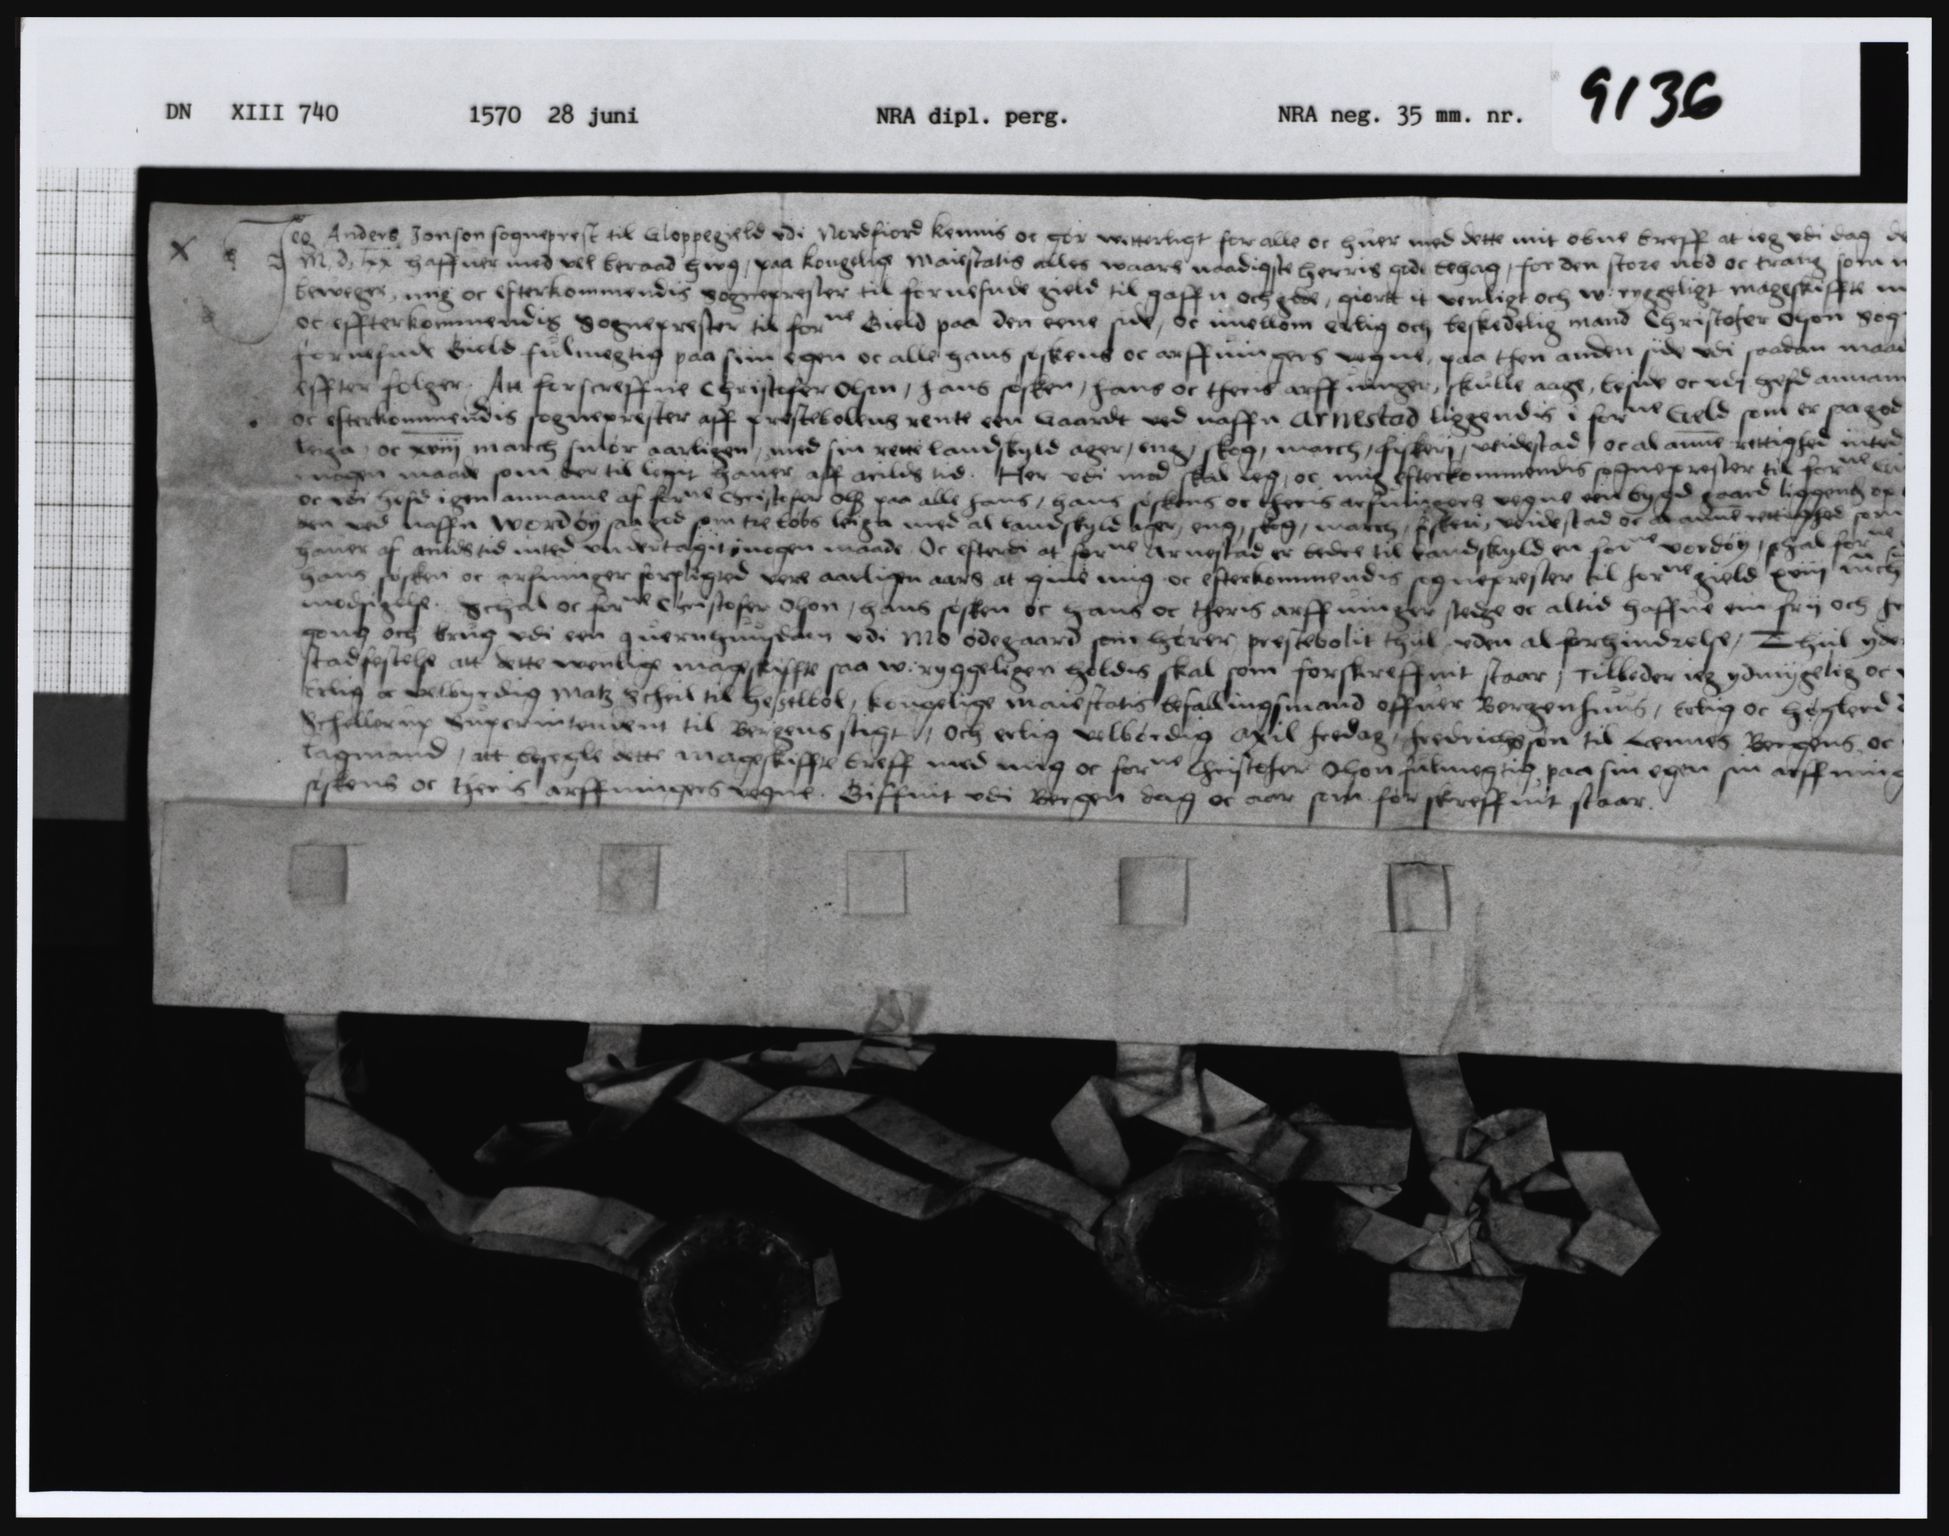 DN XIII 740 1570 28 juni NRA dipl. perg. NRA neg. 35 mm. nr. 9136
x Jeg Anders Jonson sogneprest til Gloppegield vdi Nordfiord kennis oc gør witterligt for alle oc huer med dette mit obne breff at ieg vdi dag de
M. d. lxx haffuer med vel beraad hwg, paa kongelige Maiestatis alles waars naadigste herris gode behag, for den store nød oc trang som m
beweger, mig oc efterkommendis Sogneprester til fornefnde gield til gaffn och gode, giortt it venligt och w.ryggeligt mageskiffte m
oc effterkommendis Sogneprester til forne Gield paa den eene side, oc imellom erlig och beskedelig mand Christofer Olson Sog
fornefnde Gield fulmegtig paa sin egen oc alle hans søskens oc arffuingers vegne, paa then anden side vdi saadan maad
effter følger. Att forscreffne Christofer Olson, hans søsken, hans oc theris arffuinger, skulle aage, beside oc vdi hefd annam
oc efterkommendis sogneprester aff prestebolens rente een Gaardt ved naffn Arnestad liggendis i forne Gield som er saa god
leiga, oc xviij march smør aarligen, med sin rette landskyld ager, eng, skog, march, fiskeri, veidestad, oc al anne rettighed inted
nogen maade som der til legit haner aff arilds tid. Her vdi mod skal ieg, oc mig efterkommendis sogneprester til forne
oc vdi hefd igen anname af forne Christofer Ols paa alle hans, hans søskens oc theris arfuingers vegne ein bygd gaard liggend
den ved naffn Wordøy saa god som tre løbs leiga med al landskyld ager, eng, skog, march, fiskeri, veidestad oc al anne rettighed som
haner af arilds tid inted vndertagit i nogen maade. Oc efterdi at forne Arnestad er bedre til landskyld en forne Vordøy, schal forne
hans søsken oc arfuinger forpligted vere aarligen aars at giue mig oc efterkommendis sogneprester til forne gield xviij mch
modsigelse. Schal oc forne Christofer Olson, hans søsken oc hans oc theris arffuinger stedze oc altid haffue ein frij och
gong och brug vdi een quernhuusdam vdi Mo ødegaard som hører prestebolit thil vden al forhindrelse, Thil yder
stadfestelse att dette wenlige mageskiffte saa w.ryggeligen holdis skal som forskreffuit staar, Tilbeder ieg ydmygelig oc
Erlig oc velbyrdig Matz Scheil til heszelbol, kongelige maiestatis befallingsmand offuer Bergenhuus, Erlig oc høglerd
Schellerup Superintendent til Bergens stigt, Och erlig velbørdig Axil fredag, fredrichssøn til Lønnes Bergens oc
Lagmand, att besegle dette mageskiffte breff med mig oc forne Christofer Olson fulmegtig paa sin egen sin arffuing
søskens oc theris arffuingers vegne. Giffuit vdi Bergen dag oc aar som for skreffuit staar.